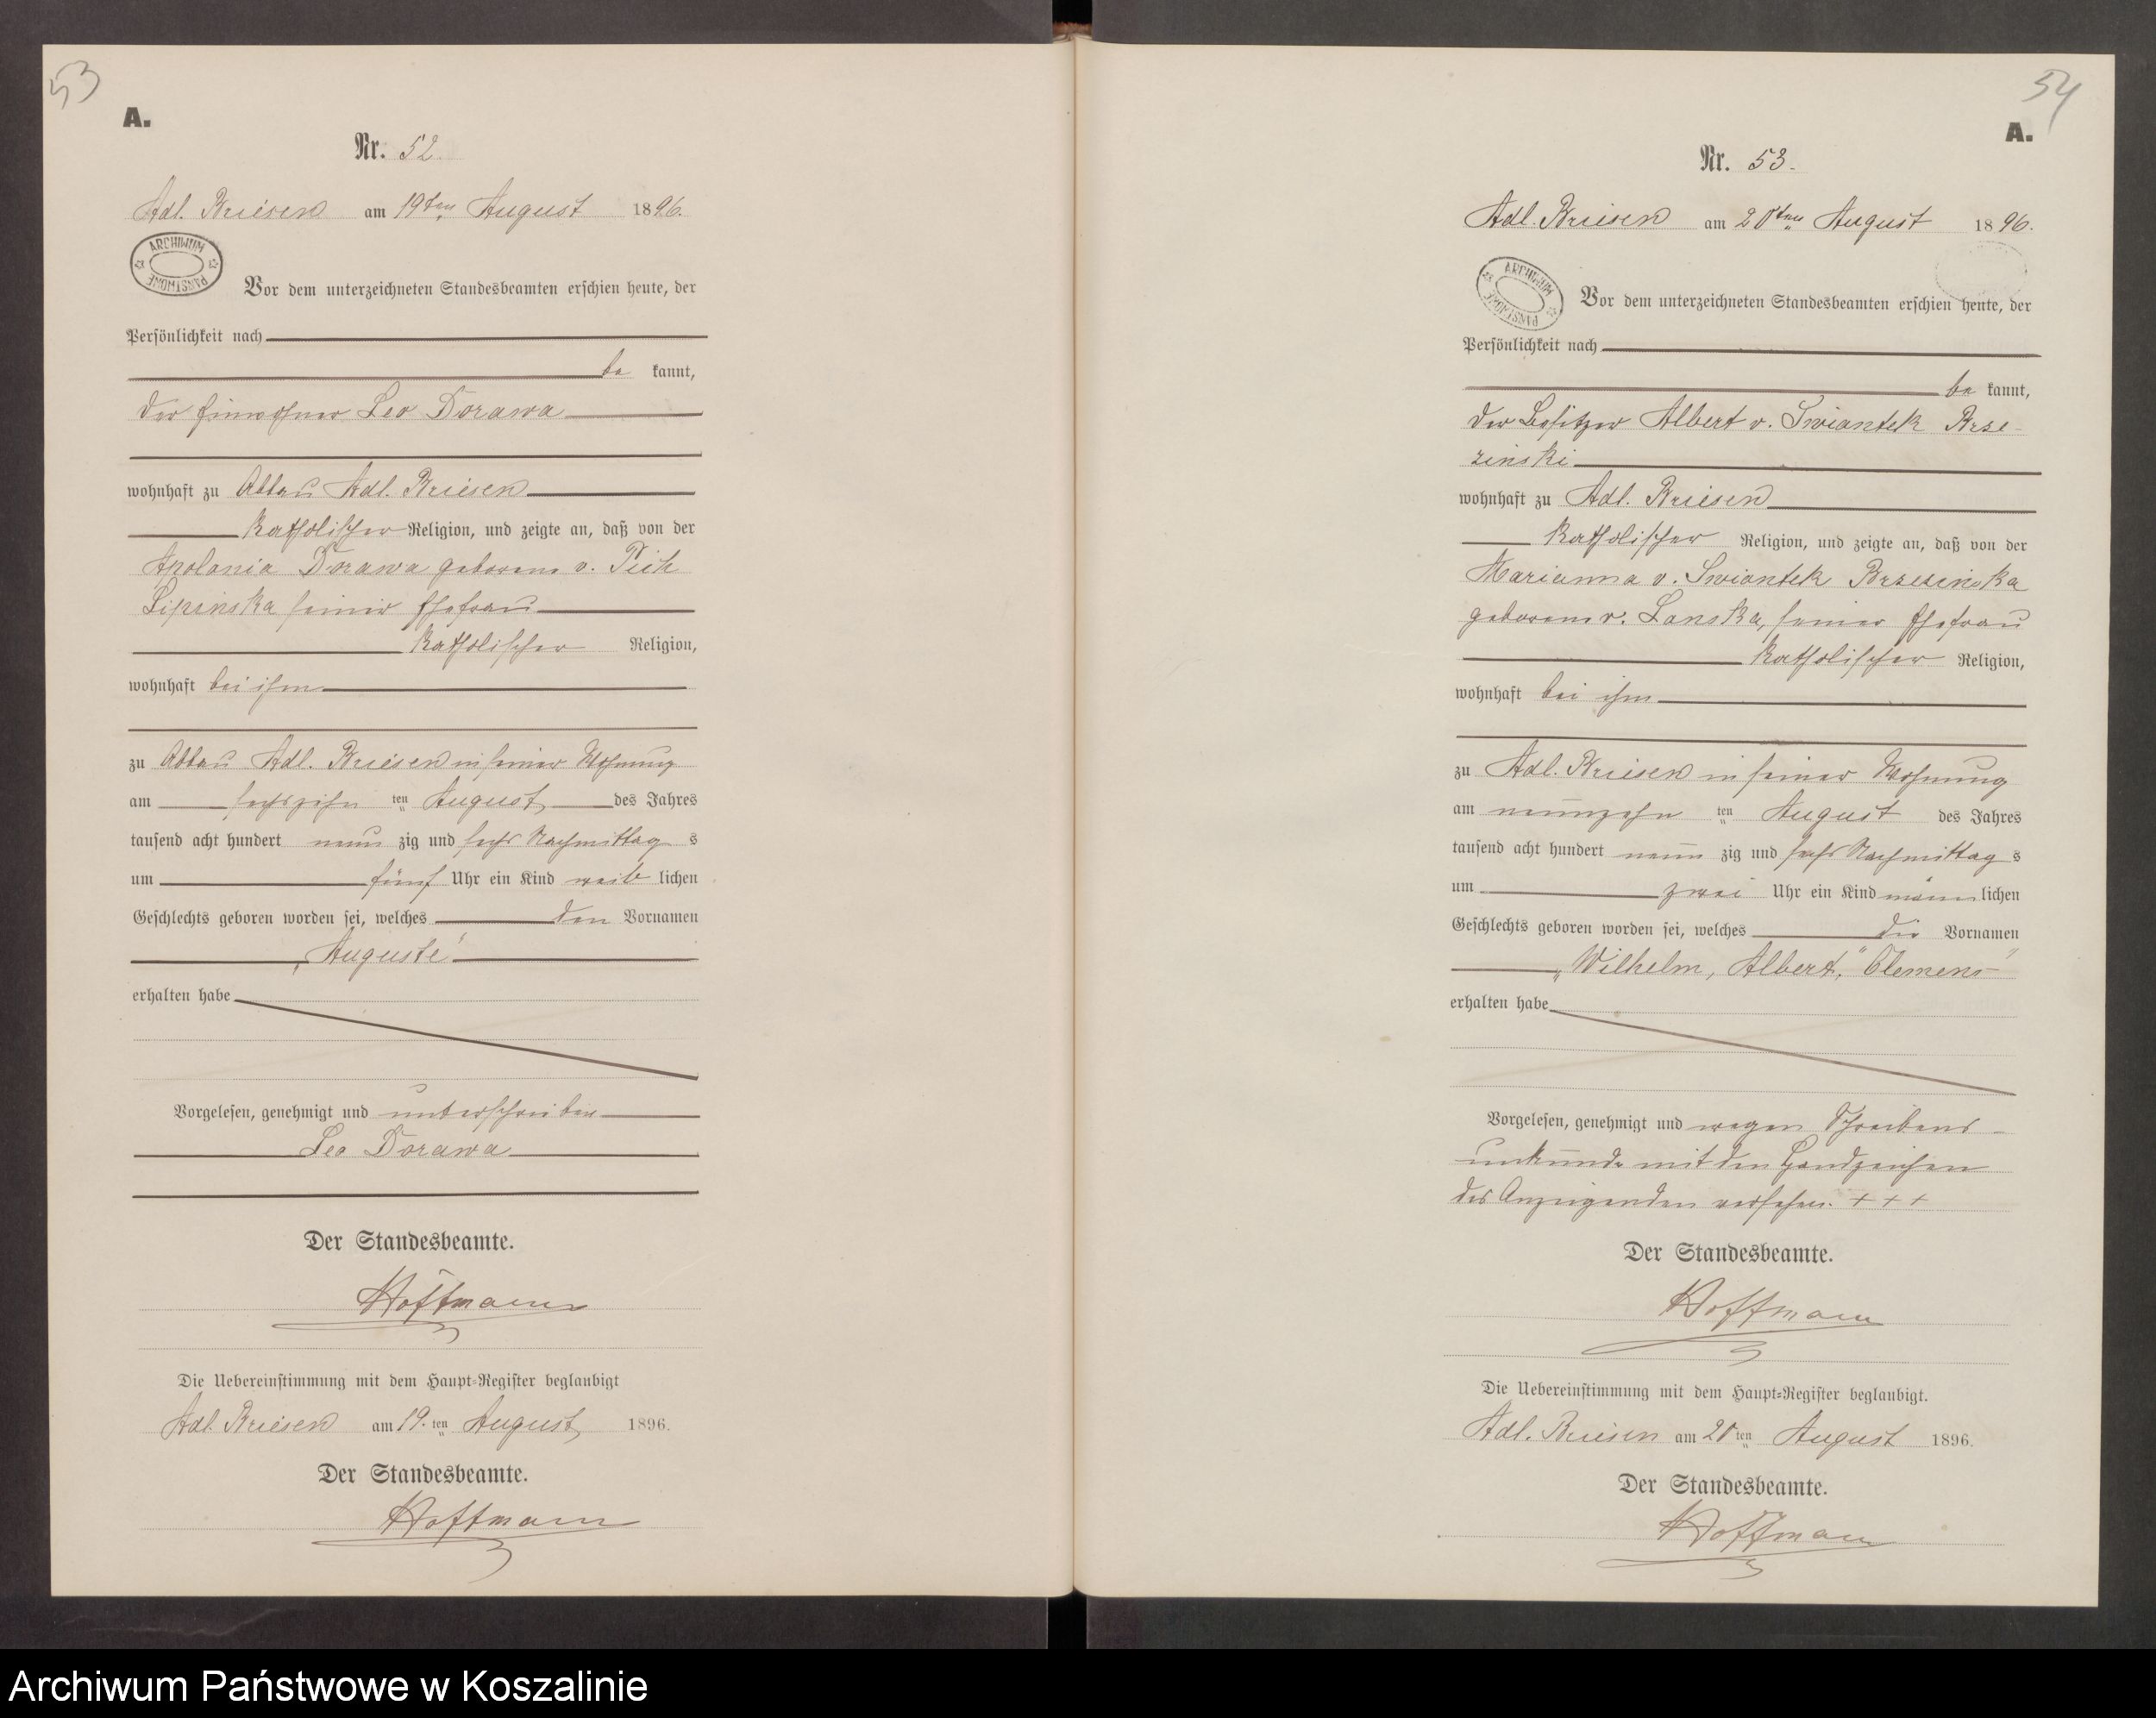 53
A.
Nr. 52.
Adl. Briesen am 19ten August 1896.
ARCHIWUM PAŃSTWOWE
Vor dem unterzeichneten Standesbeamten erschien heute, der
Persönlichkeit nach
be kannt,
der Einwohner Leo Dorawa
wohnhaft zu Abbau Adl. Briesen
katholischer Religion, und zeigte an, daß von der
Apolonia Dorawa geborene v.
Lipinska seiner Ehefrau
katholischer Religion,
wohnhaft bei ihm
zu Abbau Adl. Briesen in seiner Wohnung
am sechszehn ten August des Jahres
tausend acht hundert neun zig und sechs Nachmittag s
um fünf Uhr ein Kind weib lichen
Geschlechts geboren worden sei, welches den Vornamen
„Auguste"
erhalten habe
Vorgelesen, genehmigt und unterschrieben
Leo Dorawa
Der Standesbeamte.
Hoffmann
Die Uebereinstimmung mit dem Haupt-Register beglaubigt
Adl. Briesen am 19. ten August 1896.
Der Standesbeamte.
Hoffmann
54
A.
Nr. 53.
Adl. Briesen am 20ten August 1896.
ARCHIWUM PAŃSTWOWE
Vor dem unterzeichneten Standesbeamten erschien heute, der
Persönlichkeit nach
be kannt,
der Besitzer Albert v. Swiantek Brse-
zinski
wohnhaft zu Adl. Briesen
katholischer Religion, und zeigte an, daß von der
Marianna v. Swiantek Brzezinska
geborene v. Lanska, seiner Ehefrau
katholischer Religion,
wohnhaft bei ihm
zu Adl. Briesen in seiner Wohnung
am neunzehn ten August des Jahres
tausend acht hundert neun zig und sechs Nachmittag s
um zwei Uhr ein Kind männ lichen
Geschlechts geboren worden sei, welches die Vornamen
„Wilhelm, Albert," Clemens"
erhalten habe
Vorgelesen, genehmigt und wegen Schreibens-
unkunde mit den Handzeichen
des Anzeigenden versehen. + + +
Der Standesbeamte.
Hoffmann
Die Uebereinstimmung mit dem Haupt-Register beglaubigt.
Adl. Briesen am 20 ten August 1896.
Der Standesbeamte.
Hoffmann
Archiwum Państwowe w Koszalinie